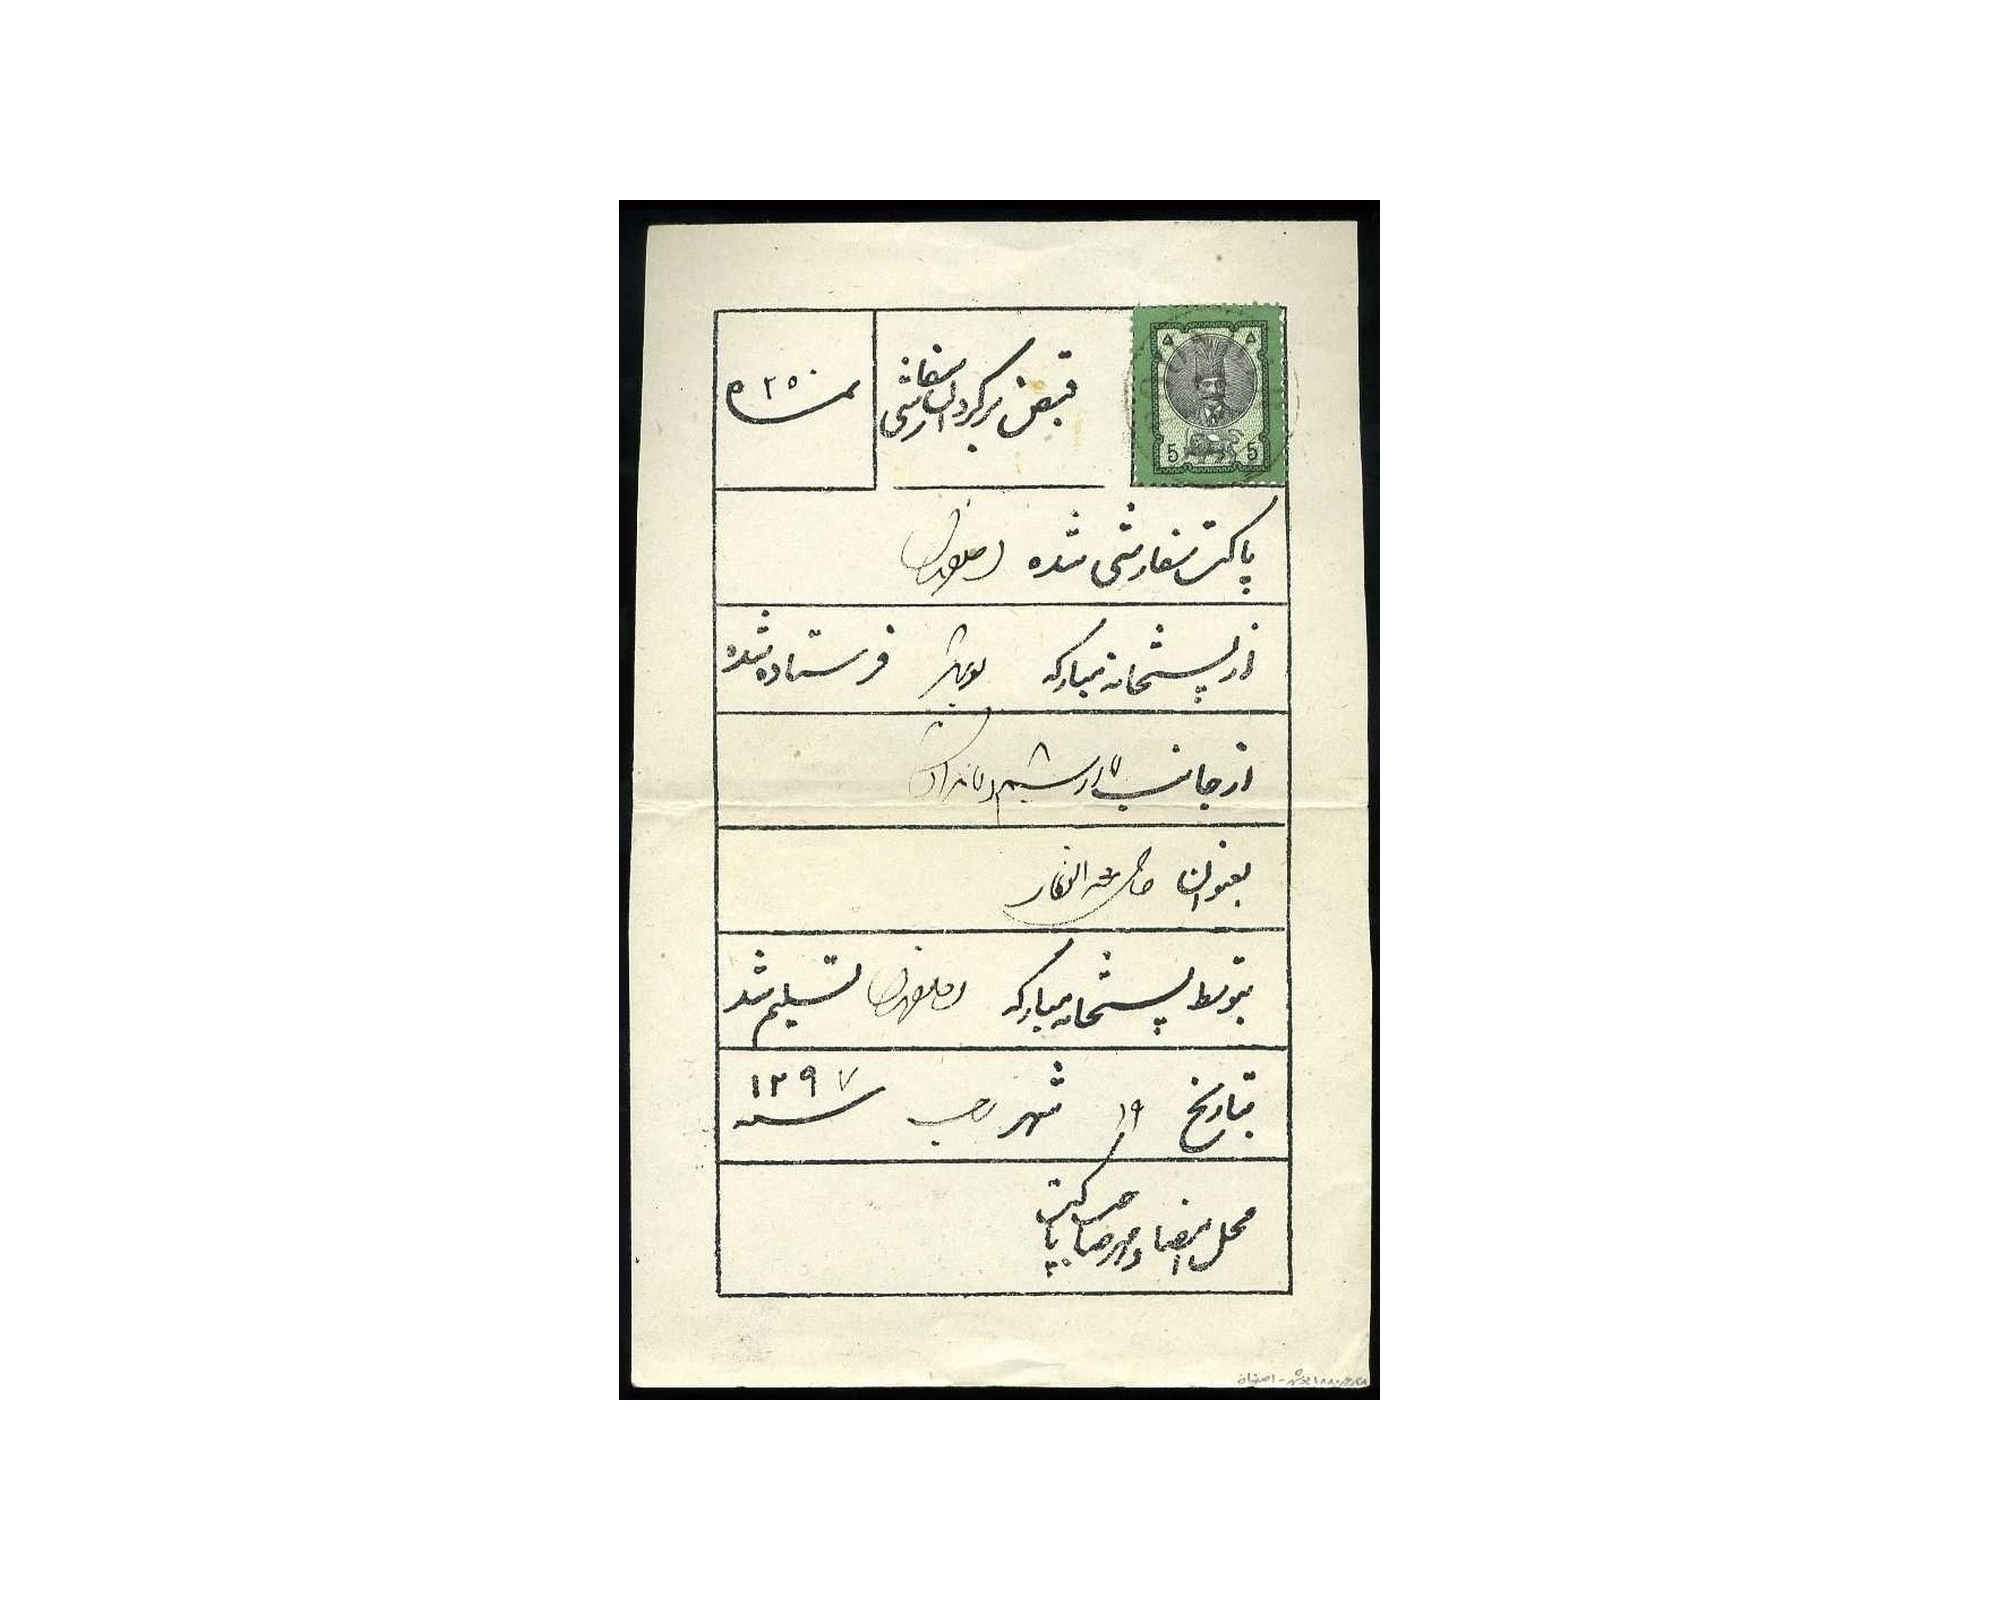 ۵ ۵
5 5
قبض برگردان سفارشی
نمره ۲۵۰
پاکت سفارشی شده اصفهان
از پستخانه مبارکه بوشهر فرستاده شده
از جانب
بعنوان حاجی عبدالغفار
بتوسط پستخانه مبارکه اصفهان تسلیم شد
بتاریخ ۱۹ شهر رجب سنه ۱۲۹۷
محل امضا و مهر صاحب پاکت